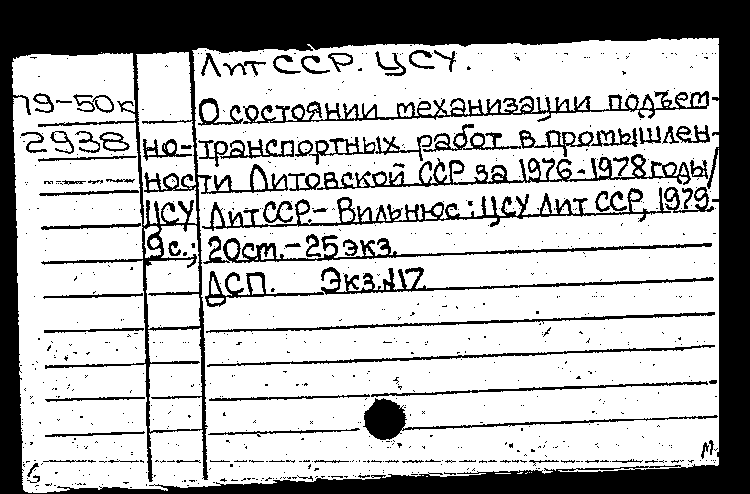 Лит ССР. ЦСУ.
79-50к О состоянии механизации подъем-
2938 но-транспортных работ в промышлен-
ности Литовской ССР за 1976-1978 годы/
ЦСУ Лит ССР.- Вильнюс: ЦСУ Лит ССР, 1979.-
9с.; 20см.-25 экз.
ДСП. Экз.№17.
М.